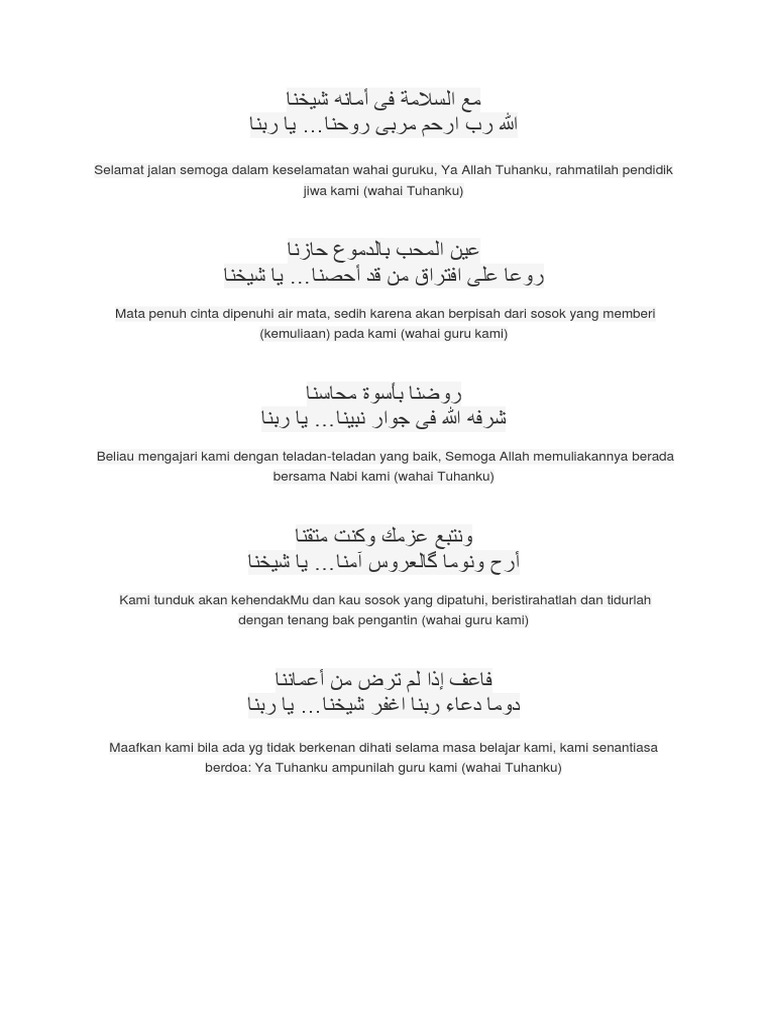 مع السلامة فى أمانه شيخنا
الله رب ارحم مربى روحنا... يا ربنا
Selamat jalan semoga dalam keselamatan wahai guruku, Ya Allah Tuhanku, rahmatilah pendidik
jiwa kami (wahai Tuhanku)
عين المحب بالدموع حازنا
روعا على افتراق من قد أحصنا... يا شيخنا
Mata penuh cinta dipenuhi air mata, sedih karena akan berpisah dari sosok yang memberi
(kemuliaan) pada kami (wahai guru kami)
روضنا بأسوة محاسنا
شرفه الله فى جوار نبينا... يا ربنا
Beliau mengajari kami dengan teladan-teladan yang baik, Semoga Allah memuliakannya berada
bersama Nabi kami (wahai Tuhanku)
ونتبع عزمك وكنت متقنا
أرح ونوما گالعروس آمنا... يا شيخنا
Kami tunduk akan kehendakMu dan kau sosok yang dipatuhi, beristirahatlah dan tidurlah
dengan tenang bak pengantin (wahai guru kami)
فاعف إذا لم ترض من أعماننا
دوما دعاء ربنا اغفر شيخنا... يا ربنا
Maafkan kami bila ada yg tidak berkenan dihati selama masa belajar kami, kami senantiasa
berdoa: Ya Tuhanku ampunilah guru kami (wahai Tuhanku)